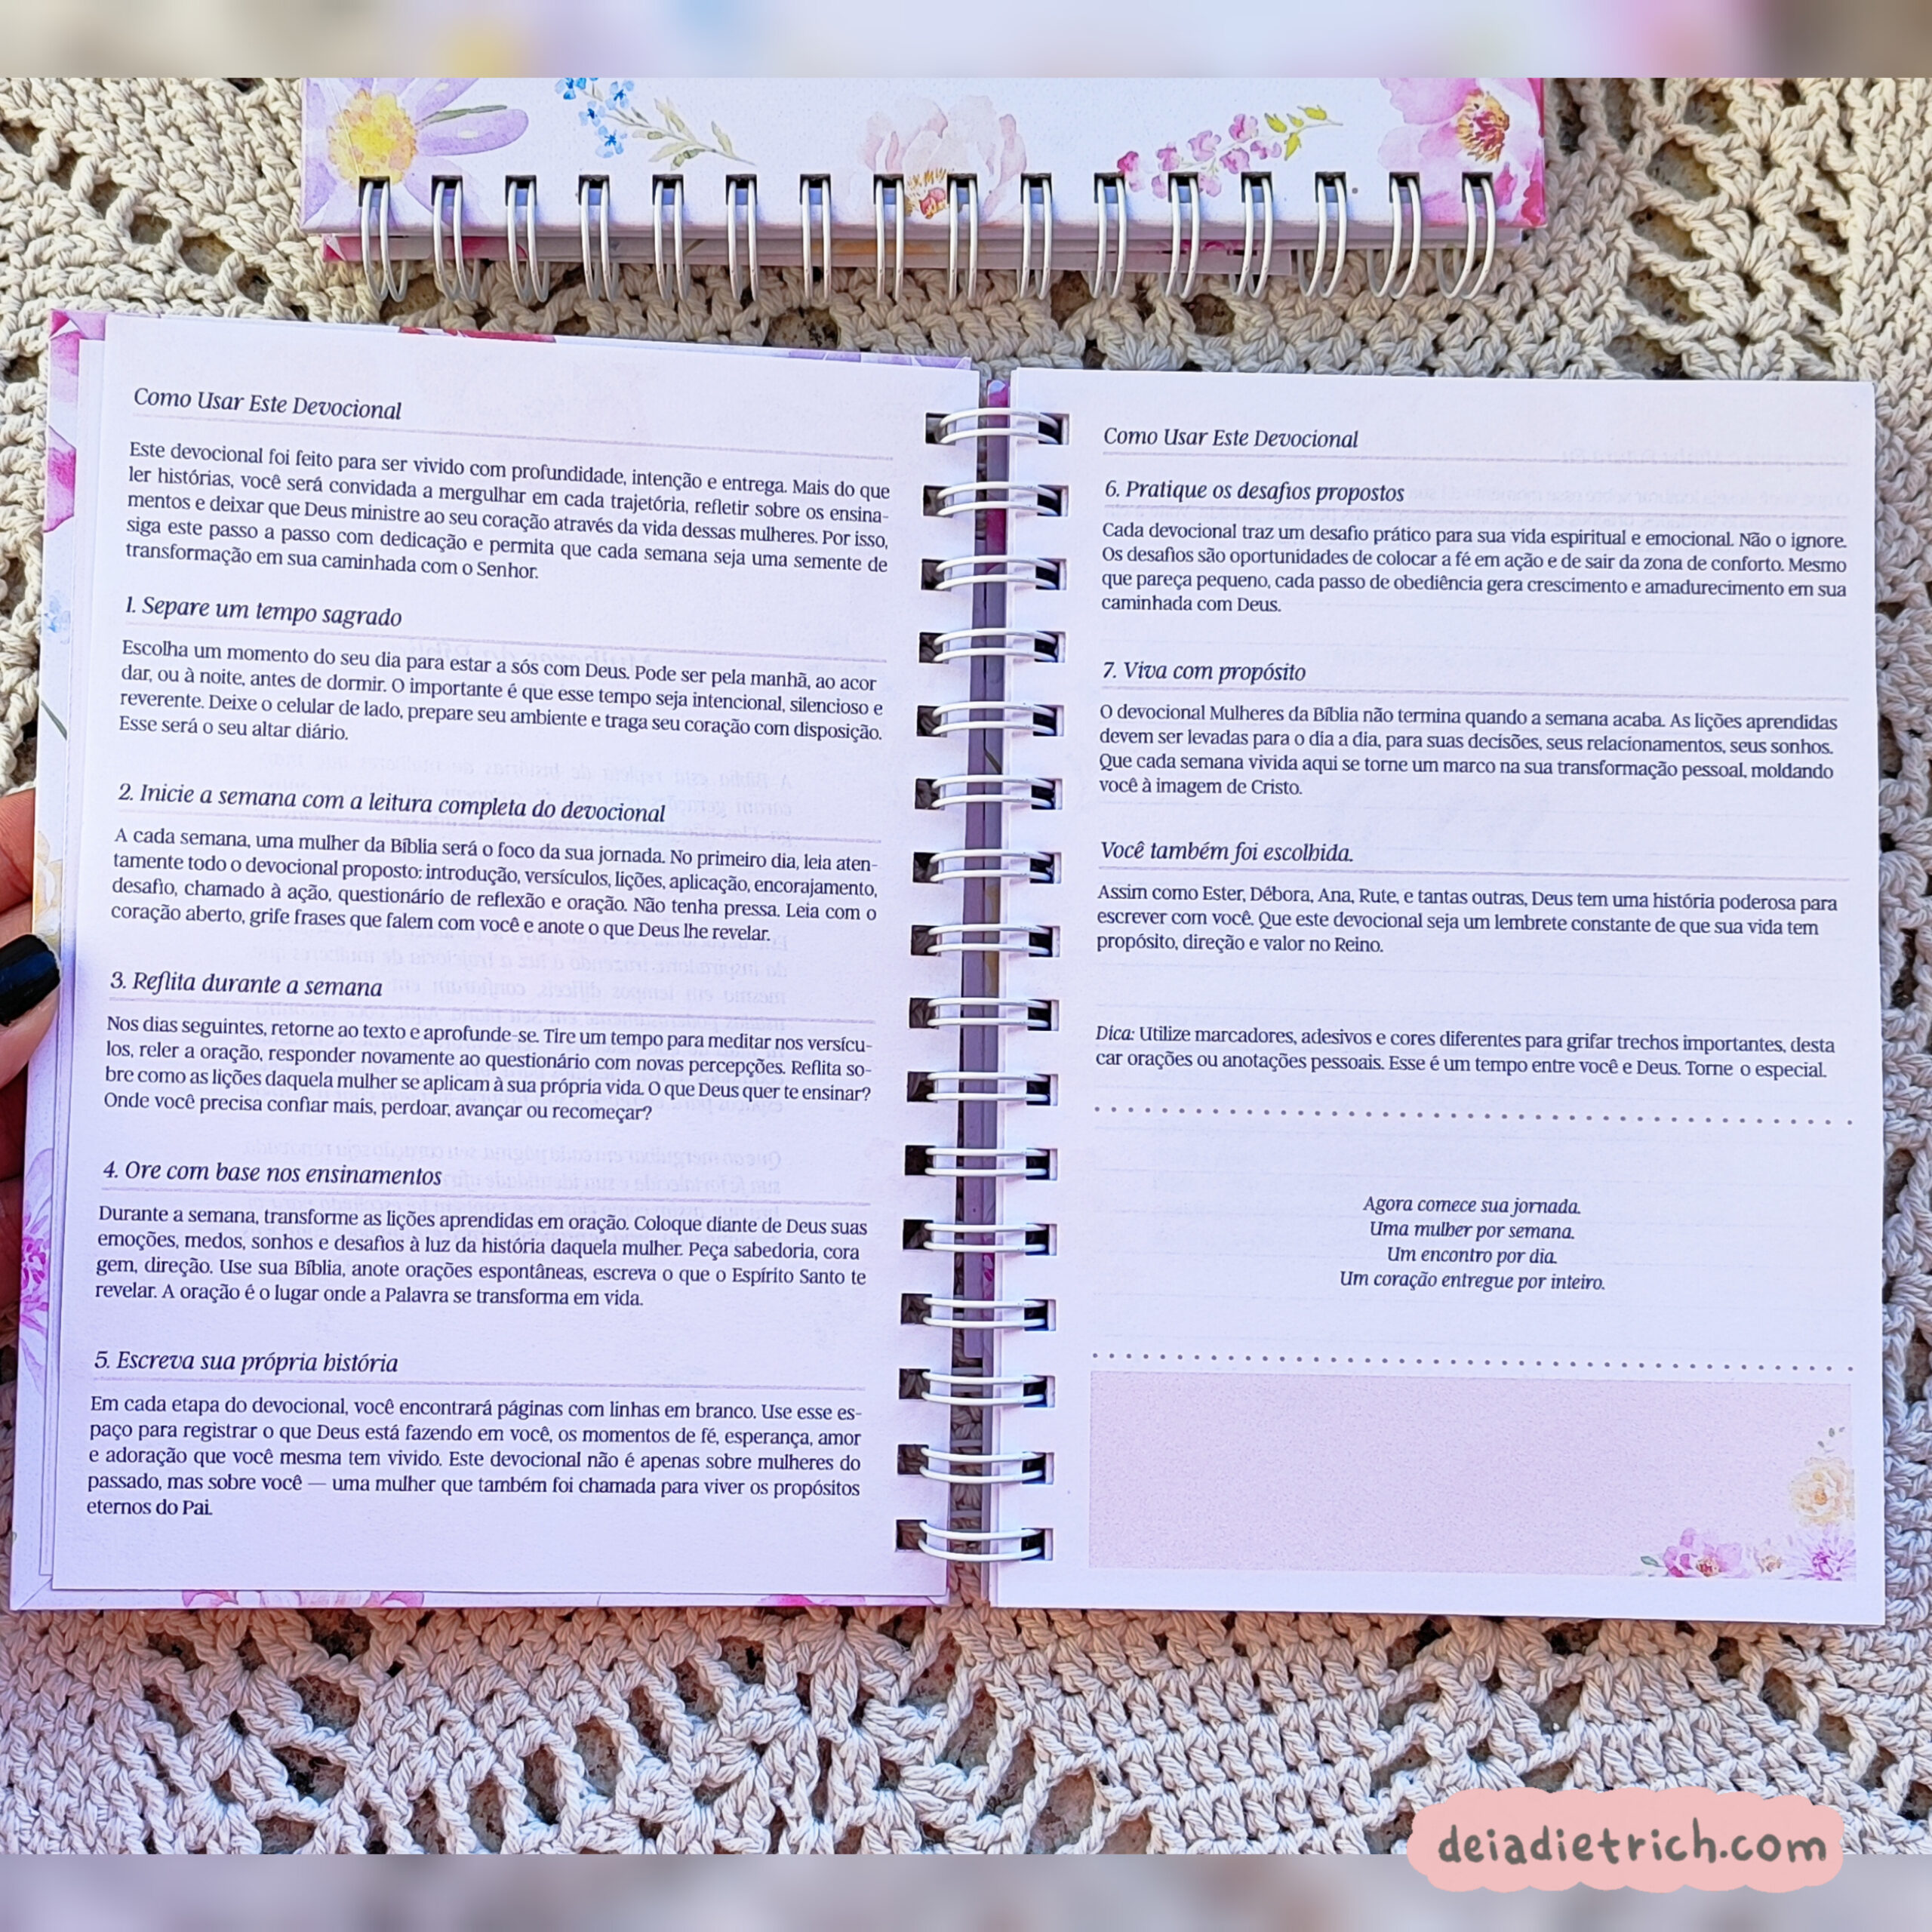 Como Usar Este Devocional
Este devocional foi feito para ser vivido com profundidade, intenção e entrega. Mais do que
ler histórias, você será convidada a mergulhar em cada trajetória, refletir sobre os ensina-
mentos e deixar que Deus ministre ao seu coração através da vida dessas mulheres. Por isso,
siga este passo a passo com dedicação e permita que cada semana seja uma semente de
transformação em sua caminhada com o Senhor.
1. Separe um tempo sagrado
Escolha um momento do seu dia para estar a sós com Deus. Pode ser pela manhã, ao acor
dar, ou à noite, antes de dormir. O importante é que esse tempo seja intencional, silencioso e
reverente. Deixe o celular de lado, prepare seu ambiente e traga seu coração com disposição.
Esse será o seu altar diário.
2. Inicie a semana com a leitura completa do devocional
A cada semana, uma mulher da Bíblia será o foco da sua jornada. No primeiro dia, leia aten-
tamente todo o devocional proposto: introdução, versículos, lições, aplicação, encorajamento,
desafio, chamado à ação, questionário de reflexão e oração. Não tenha pressa. Leia com o
coração aberto, grife frases que falem com você e anote o que Deus lhe revelar.
3. Reflita durante a semana
Nos dias seguintes, retorne ao texto e aprofunde-se. Tire um tempo para meditar nos versícu-
los, reler a oração, responder novamente ao questionário com novas percepções. Reflita so-
bre como as lições daquela mulher se aplicam à sua própria vida. O que Deus quer te ensinar?
Onde você precisa confiar mais, perdoar, avançar ou recomeçar?
4. Ore com base nos ensinamentos
Durante a semana, transforme as lições aprendidas em oração. Coloque diante de Deus suas
emoções, medos, sonhos e desafios à luz da história daquela mulher. Peça sabedoria, cora
gem, direção. Use sua Bíblia, anote orações espontâneas, escreva o que o Espírito Santo te
revelar. A oração é o lugar onde a Palavra se transforma em vida.
5. Escreva sua própria história
Em cada etapa do devocional, você encontrará páginas com linhas em branco. Use esse es-
paço para registrar o que Deus está fazendo em você, os momentos de fé, esperança, amor
e adoração que você mesma tem vivido. Este devocional não é apenas sobre mulheres do
passado, mas sobre você — uma mulher que também foi chamada para viver os propósitos
eternos do Pai.
Como Usar Este Devocional
6. Pratique os desafios propostos
Cada devocional traz um desafio prático para sua vida espiritual e emocional. Não o ignore.
Os desafios são oportunidades de colocar a fé em ação e de sair da zona de conforto. Mesmo
que pareça pequeno, cada passo de obediência gera crescimento e amadurecimento em sua
caminhada com Deus.
7. Viva com propósito
O devocional Mulheres da Bíblia não termina quando a semana acaba. As lições aprendidas
devem ser levadas para o dia a dia, para suas decisões, seus relacionamentos, seus sonhos.
Que cada semana vivida aqui se torne um marco na sua transformação pessoal, moldando
você à imagem de Cristo.
Você também foi escolhida.
Assim como Ester, Débora, Ana, Rute, e tantas outras, Deus tem uma história poderosa para
escrever com você. Que este devocional seja um lembrete constante de que sua vida tem
propósito, direção e valor no Reino.
Dica: Utilize marcadores, adesivos e cores diferentes para grifar trechos importantes, desta
car orações ou anotações pessoais. Esse é um tempo entre você e Deus. Torne o especial.
Agora comece sua jornada.
Uma mulher por semana.
Um encontro por dia.
Um coração entregue por inteiro.
deiadietrich.com